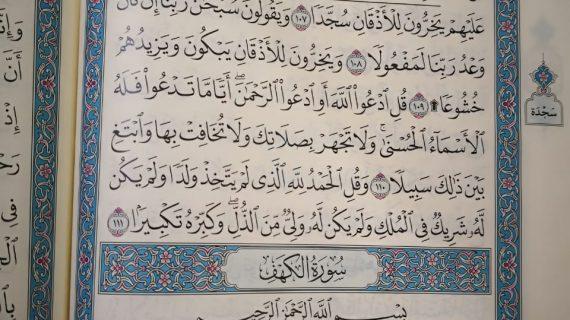 عَلَيْهِمْ يَخِرُّونَ لِلْأَذْقَانِ سُجَّدًا ١٠٧ وَيَقُولُونَ سُبْحَٰنَ رَبِّنَا إِن كَانَ
وَعْدُ رَبِّنَا لَمَفْعُولًا ١٠٨ وَيَخِرُّونَ لِلْأَذْقَانِ يَبْكُونَ وَيَزِيدُهُمْ
خُشُوعًا ۩ ١٠٩ قُلِ ٱدْعُوا۟ ٱللَّهَ أَوِ ٱدْعُوا۟ ٱلرَّحْمَٰنَ ۖ أَيًّا مَّا تَدْعُوا۟ فَلَهُ
ٱلْأَسْمَآءُ ٱلْحُسْنَىٰ ۚ وَلَا تَجْهَرْ بِصَلَاتِكَ وَلَا تُخَافِتْ بِهَا وَٱبْتَغِ
بَيْنَ ذَٰلِكَ سَبِيلًا ١١٠ وَقُلِ ٱلْحَمْدُ لِلَّهِ ٱلَّذِى لَمْ يَتَّخِذْ وَلَدًا وَلَمْ يَكُن
لَّهُۥ شَرِيكٌ فِى ٱلْمُلْكِ وَلَمْ يَكُن لَّهُۥ وَلِىٌّ مِّنَ ٱلذُّلِّ ۖ وَكَبِّرْهُ تَكْبِيرًۢا ١١١
سُورَةُ الكَهْفِ
بِسْمِ ٱللَّهِ ٱلرَّحْمَٰنِ ٱلرَّحِيمِ
سَجْدَة